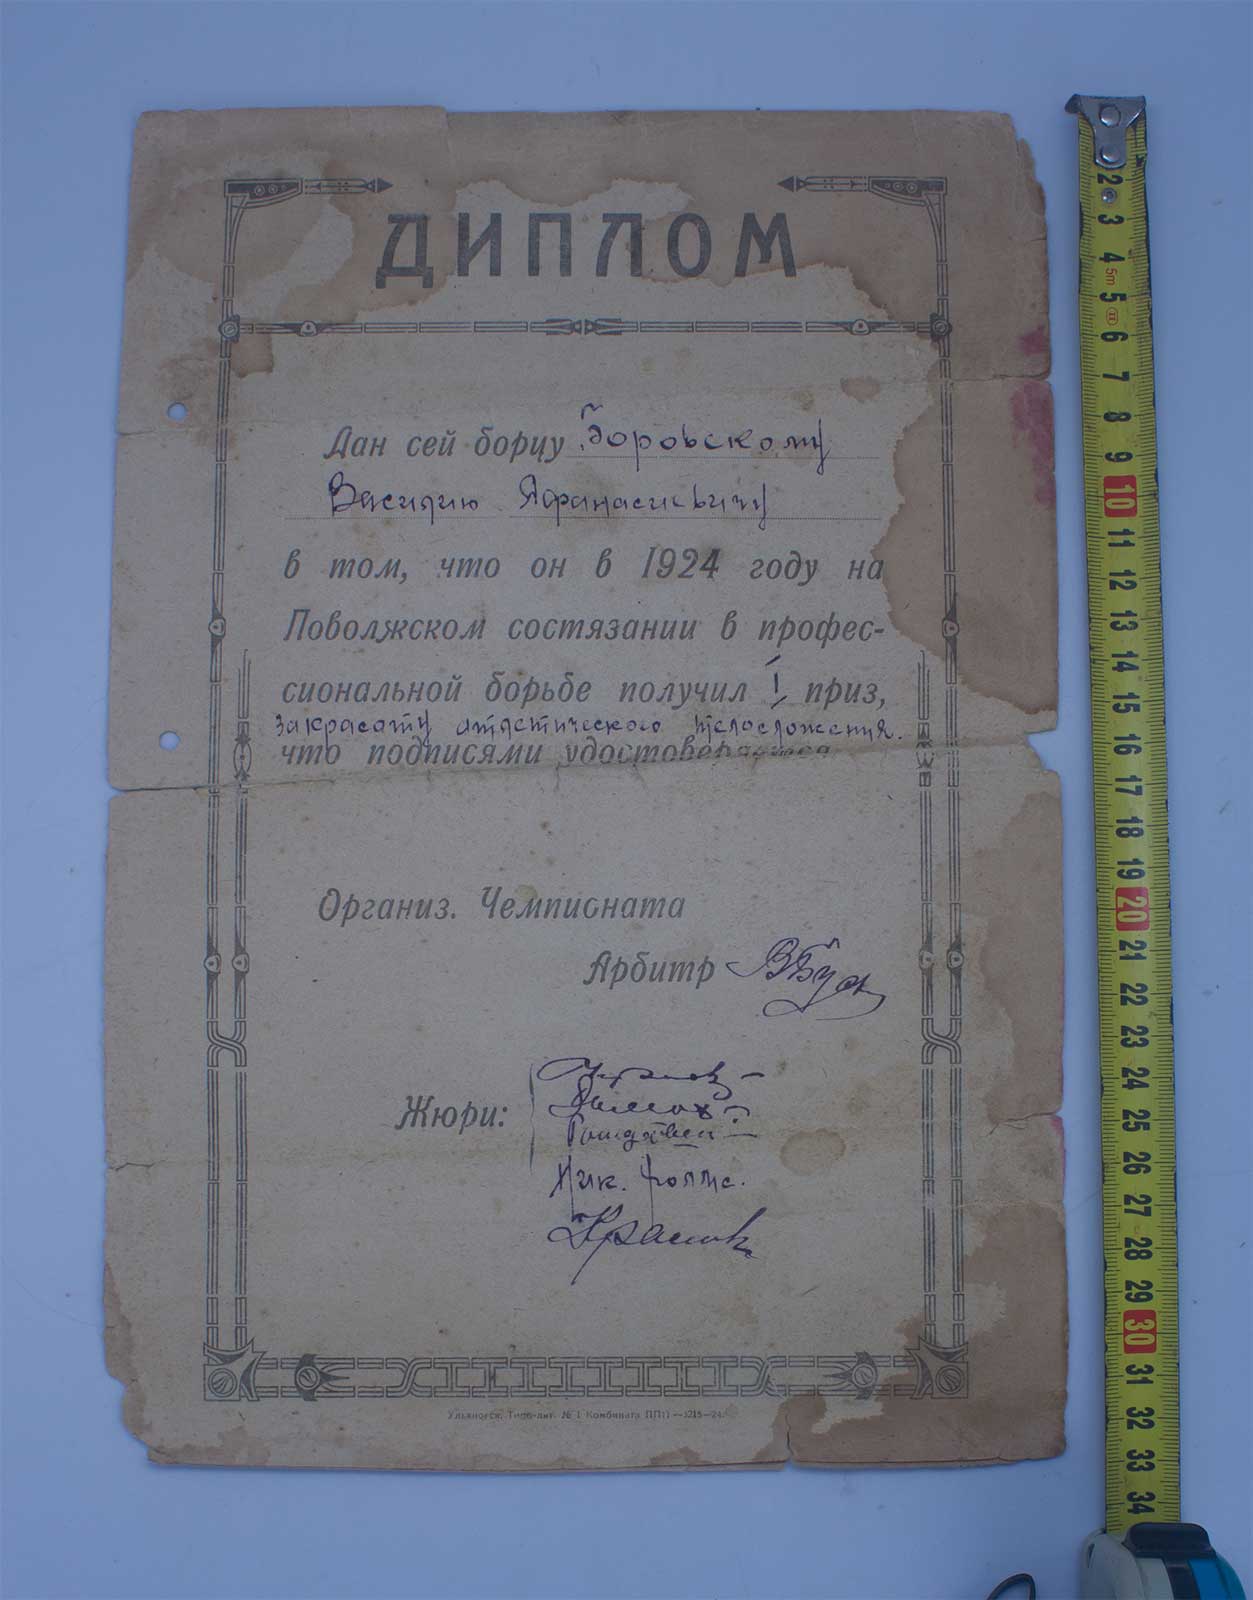 ДИПЛОМ
Дан сей борцу Боровскому
Василию Афанасиевичу
в том, что он в 1924 году на
Поволжском состязании в профес-
сиональной борьбе получил I приз,
за красоту атлетического телосложения.
что подписями удостоверяется
Организ. Чемпионата
Арбитр
Жюри:
Ник.
Ульяновск, Типо-лит. № 1 Комбината ПП
2
3
4
5m
5
II
6
7
8
9
10
11
12
13
14
15
16
17
18
19
20
21
22
23
24
25
26
27
28
29
30
31
32
33
34